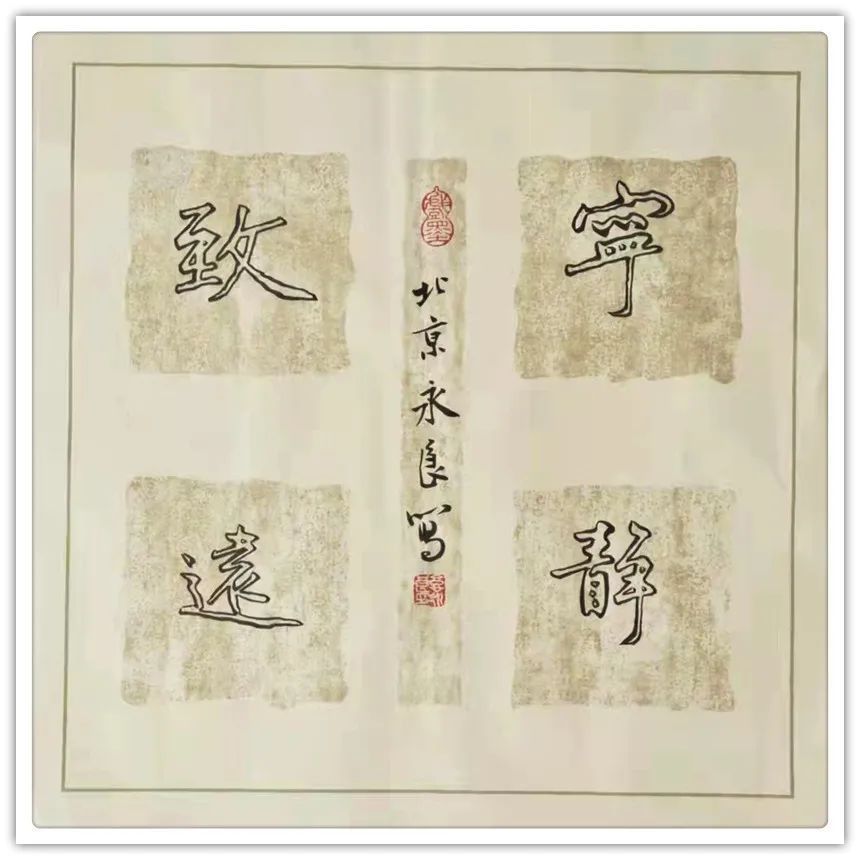 寧靜
致遠
北京永良寫